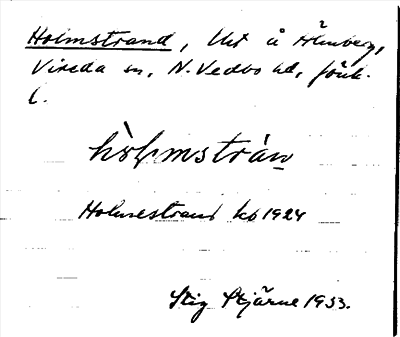 Holmstrand, Uht å Älmberg,
Vireda sn, N. Vedbo hd, Jönk.
l.
hòlmstràn
Holmestrand kb 1924
Stig Stjärne 1933.